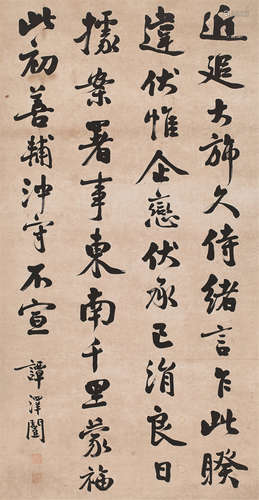 近追大旆久侍绪言乍此暌
違伏惟企戀伏承已涓良日
據案署事東南千里蒙福
此初善輔沖守不宣
譚澤闓